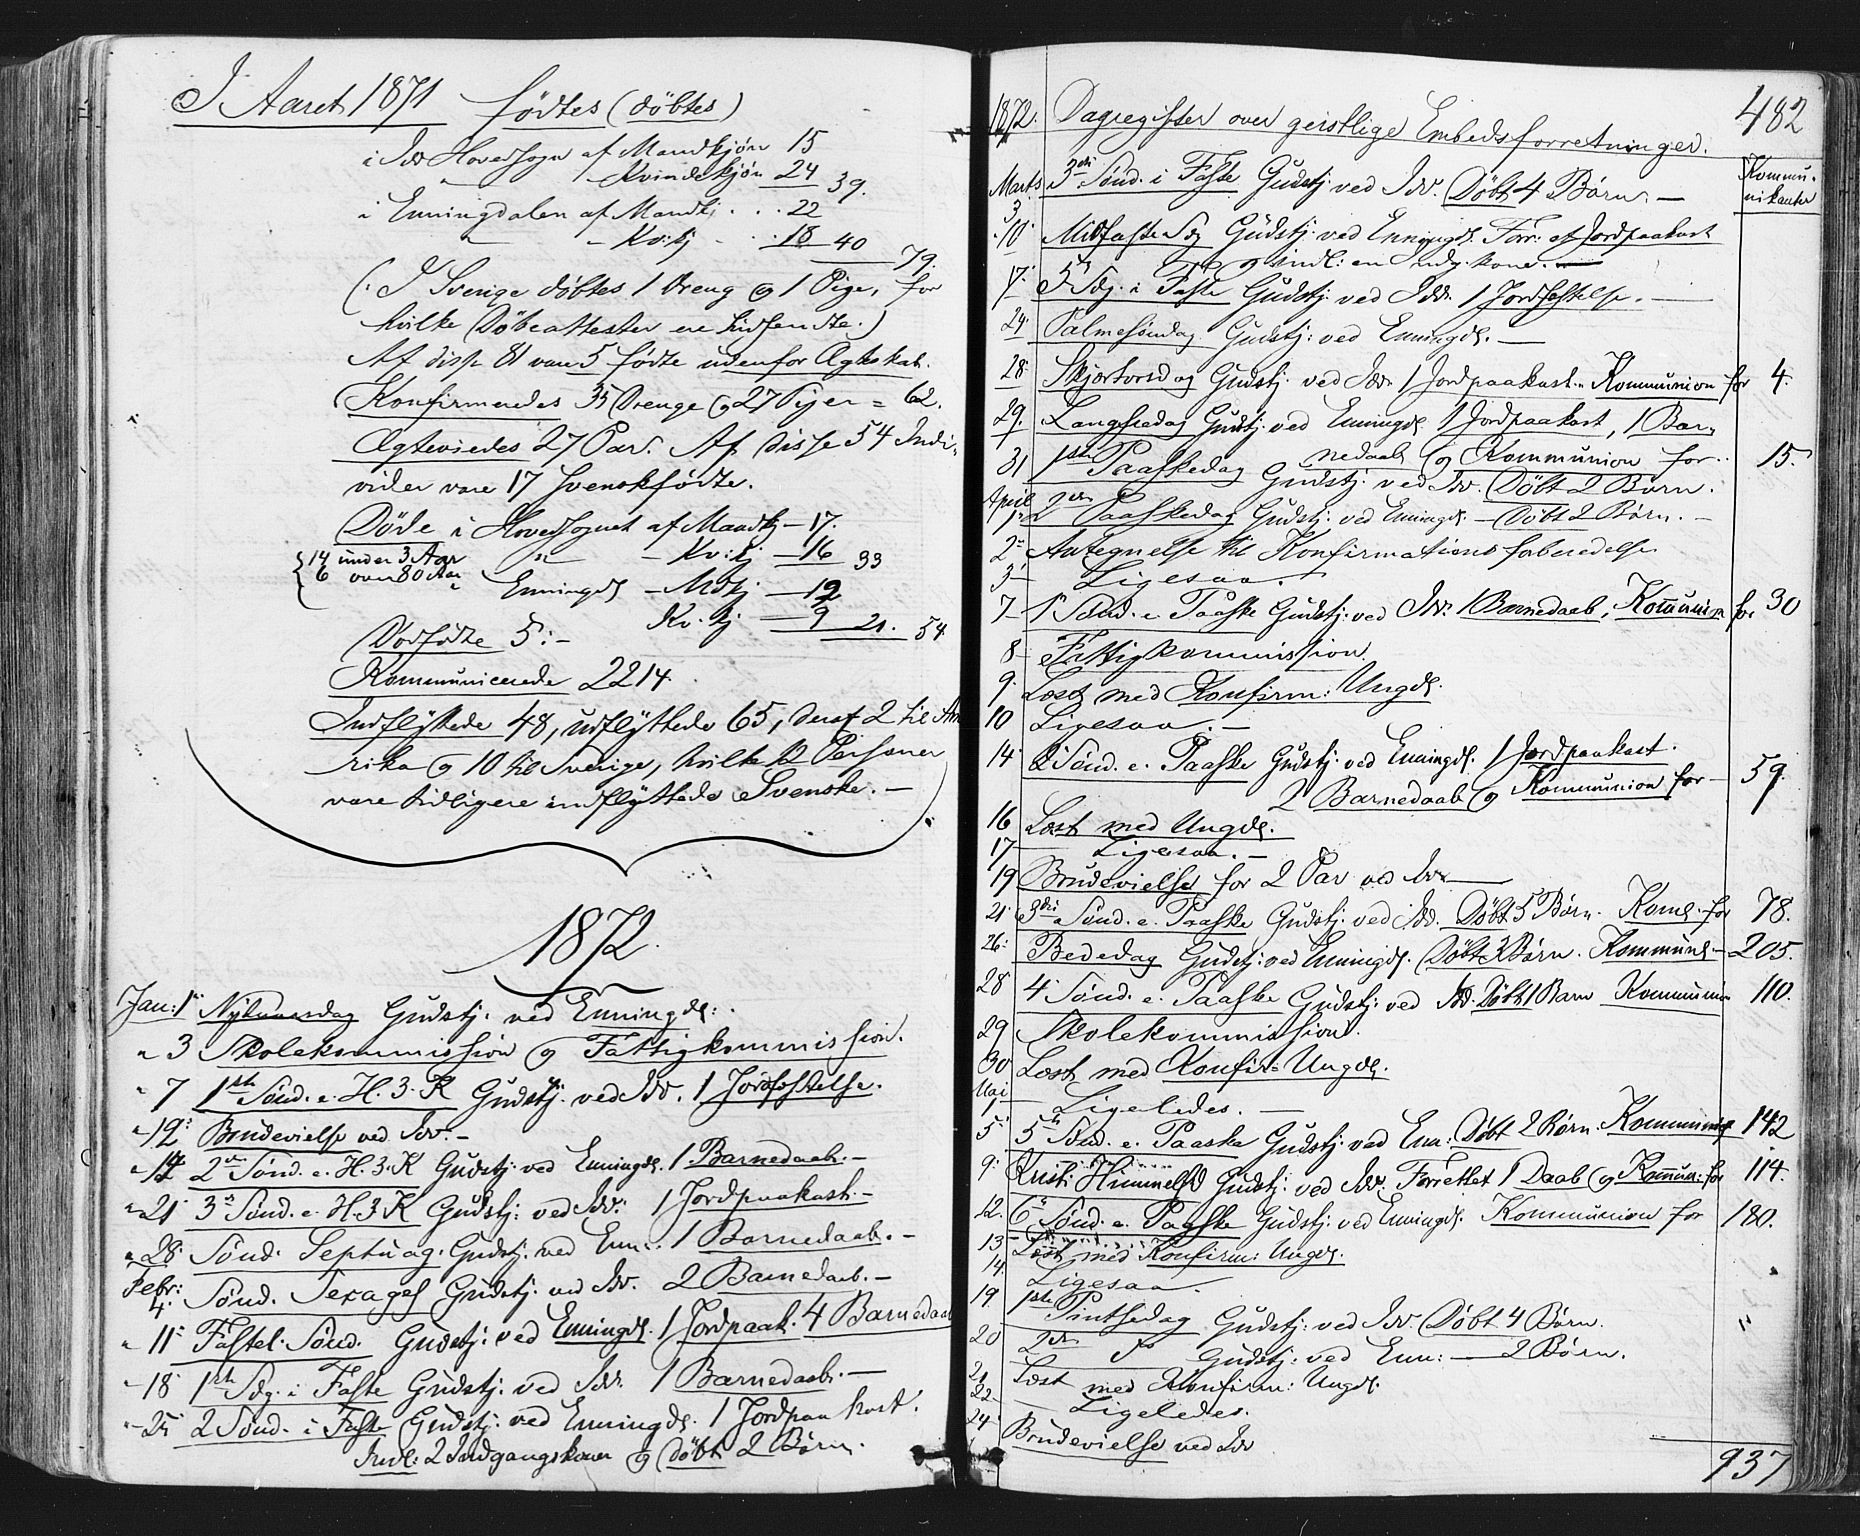 I Aaret 1871 fødtes (døbtes)
i Idd Hovedsogn af Mandkjøn 15
" - Kvindekjøn 24 39.
i Enningdalen af Mandkj. . . 22
" - Kv:kj - . . 18 40 79.
(: I Sverige døbtes 1 Dreng og 1 Pige, for
hvilke Døbeattester ere hidsendte.)
Af disse 81 vare 5 fødte udenfor Ægteskab.
Konfirmeredes 35 Drenge og 27 Piger = 62.
Ægteviedes 27 Par. Af disse 54 Indi-
vider vare 17 Svenskfødte.
Døde i Hovedsognet af Mandkj - 17.
{14 under 3 Aar " - Kv:kj - 16 33
{6 over 80 Aar " Enningd - Mdkj - 12
Kv. kj - 9 21. 54.
Dødfødte 5:-
Kommunicerede 2214.
Indflyttede 48, udflyttede 65, deraf 2 til Ame
rika og 10 til Sverige, hvilke 12 Personer
vare tidligere indflyttede Svenske. -
1872.
Jan: 1 Nytaarsdag Gudstj. ved Enningd:.
" 3 Skolekommission og Fattigkommission.
" 7 1ste Sønd. e. H. 3. K Gudstj. ved Idd. 1 Jordfæstelse.
" 12 Brudevielse ved Idd. -
" 14 2den Sønd. e. H. 3. K Gudstj. ved Enningd. 1 Barnedaab. -
" 21 3 Sønd. e. H. 3 K Gudstj: ved Idd: 1 Jordpaakast. -
" 28 Sønd. Septuag. Gudstj. ved Enn:. 1 Barnedaab. -
Febr:
4. Sønd. Sexages Gudstj. ved Idd. 2 Barnedaab. -
" 11 Fastel. Sønd. Gudstj: ved Enningd. 1 Jordpaak. 4 Barnedaab
" 18 1ste Sdg. i Faste Gudstj. ved Idd. 1 Barnedaab. -
" 25 2 Sønd. i Faste Gudstj. ved Enningd. 1 Jordpaakast.
Indl: 2 Indgangskoner og Døbt 2 Børn.
482
1872. Dagregister over geistlige Embedsforretninger.
Kommu-
nikanter
Marts
3 3die Sønd. i Faste Gudstj. ved Idd. Døbt 4 Børn. -
10 Midfaste Sdg Gudstj: ved Enningd. Forr: et Jordpaakast
og indl: en Indg. kone. -
17. 5 Sdg. i Faste Gudstj. ved Idd. 1 Jordfæstelse. -
24. Palmesøndag Gudstj: ved Enningd. -
28. Skjærtorsdag Gudstj. ved Idd. 1 Jordpaakast. Kommunion for 4.
29. Langfredag Gudstj. ved Enningd. 1 Jordpaakast, 1 Bar-
nedaab og Kommunion for. 15.
31 1ste Paaskedag Gudstj. ved Idd. Døbt 2 Børn.
April
1 2den Paaskedag Gudstj. ved Enningd. - Døbt 2 Børn. -
2 Antegnelse til Konfirmationsforberedelse
3 Ligesaa.
7 1 Sønd. e. Paaske Gudstj: ved Idd: 1 Barnedaab, Kommunion for 30
8 Fattigkommission.
9. Læst med Konfirm: Ungd.
10 Ligesaa. -
14 2 Sønd. e. Paaske Gudstj: ved Enningd. 1 Jordpaakast.
2 Barnedaab og Kommunion for - 59.
16 Læst med Ungd.
17 Ligesaa. -
19 Brudevielse for 2 Par ved Idd
21. 3die Sønd. e. Paaske Gudstj: ved Idd. Døbt 5 Børn. Komm. for 78.
26. Bededag Gudstj: ved Enningd. Døbt 3 Børn. Kommun. - 205.
28 4 Sønd. e. Paaske Gudstj: ved Idd. Døbt 1 Barn Kommunion 110.
29 Skolekommission.
30 Læst med Konfir: Ungd.
Mai
1 Ligeledes. -
5. 5 Sønd. e. Paaske Gudstj: ved Enn: Døbt 2 Børn. Kommunion 142
9. Krist: Himmelfd Gudstj: ved Idd. Forrettet 1 Daab og Kommun: for 114.
12. 6 Sønd. e. Paaske Gudstj: ved Enningd. Kommunion for 180.
13 Læst med Konfirm: Ungd.
14 Ligesaa.
19. 1ste Pintsedag Gudstj: ved Idd. Døbt 4 Børn. "
20 2den do Gudstj: ved Enn: - 2 Børn.
21 Læst med Konfirm: Ungd.
22 Ligeledes.
24. Brudevielse ved Idd
937